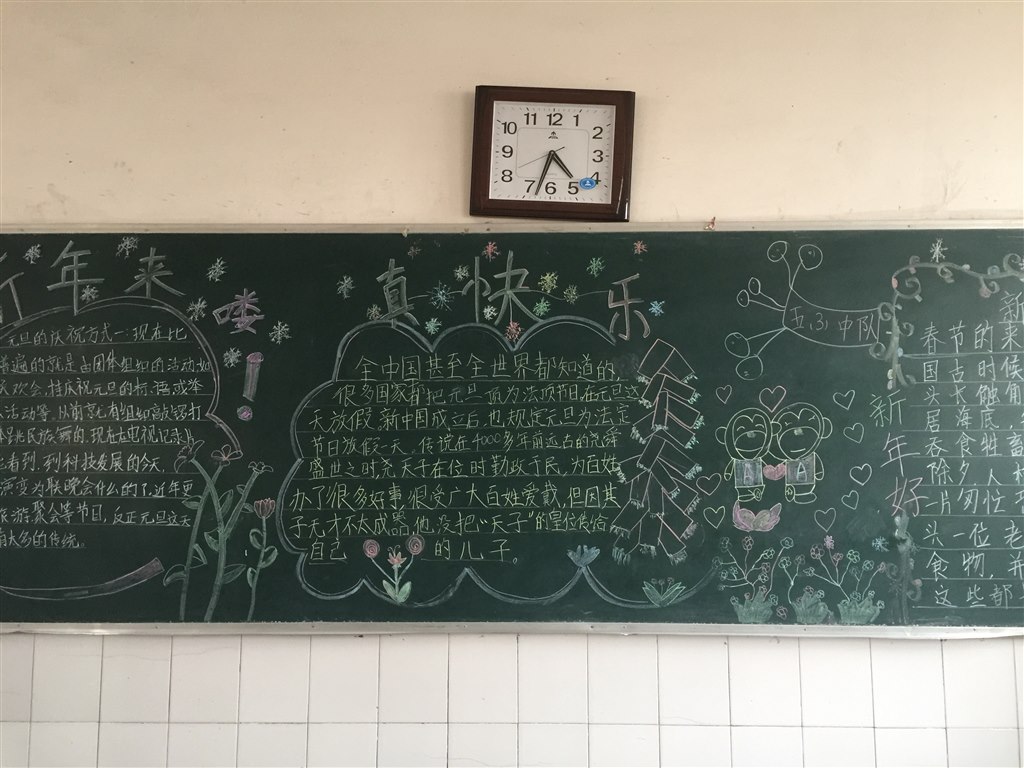 11 12 1
10 2
9 3
8 4
7 6 5
年来
喽!
真快乐
元旦的庆祝方式一:现在比
普遍的就是由团体组织的活动如
欢会、挂庆祝元旦的标语或举
活动等.从前就有组织敲锣打
民族舞的.现在电视记录片
看到.到科技发展的今天,
演变为联晚会什么的了.近年更
旅游、聚会等节目,反正元旦这天
太多的传统。
全中国甚至全世界都知道的,
很多国家都把元旦页为法项节日.在元旦这
天放假.新中国成立后也规定元旦为法定
节日放假一天.传说在4000多年前远古的尧舜
盛世之时,尧天子在位时勤政于民,为百姓
办了很多好事,很受广大百姓爱戴,但因其
子无才不太成器,他没把“天子”的皇位传给
自己的儿子。
五,3,中队
A
新年好
新
春节的来
国古时候
头长触角
居海底,
吞食牲畜
除夕,人村
一片匆忙
头一位老
食物,并
这些都